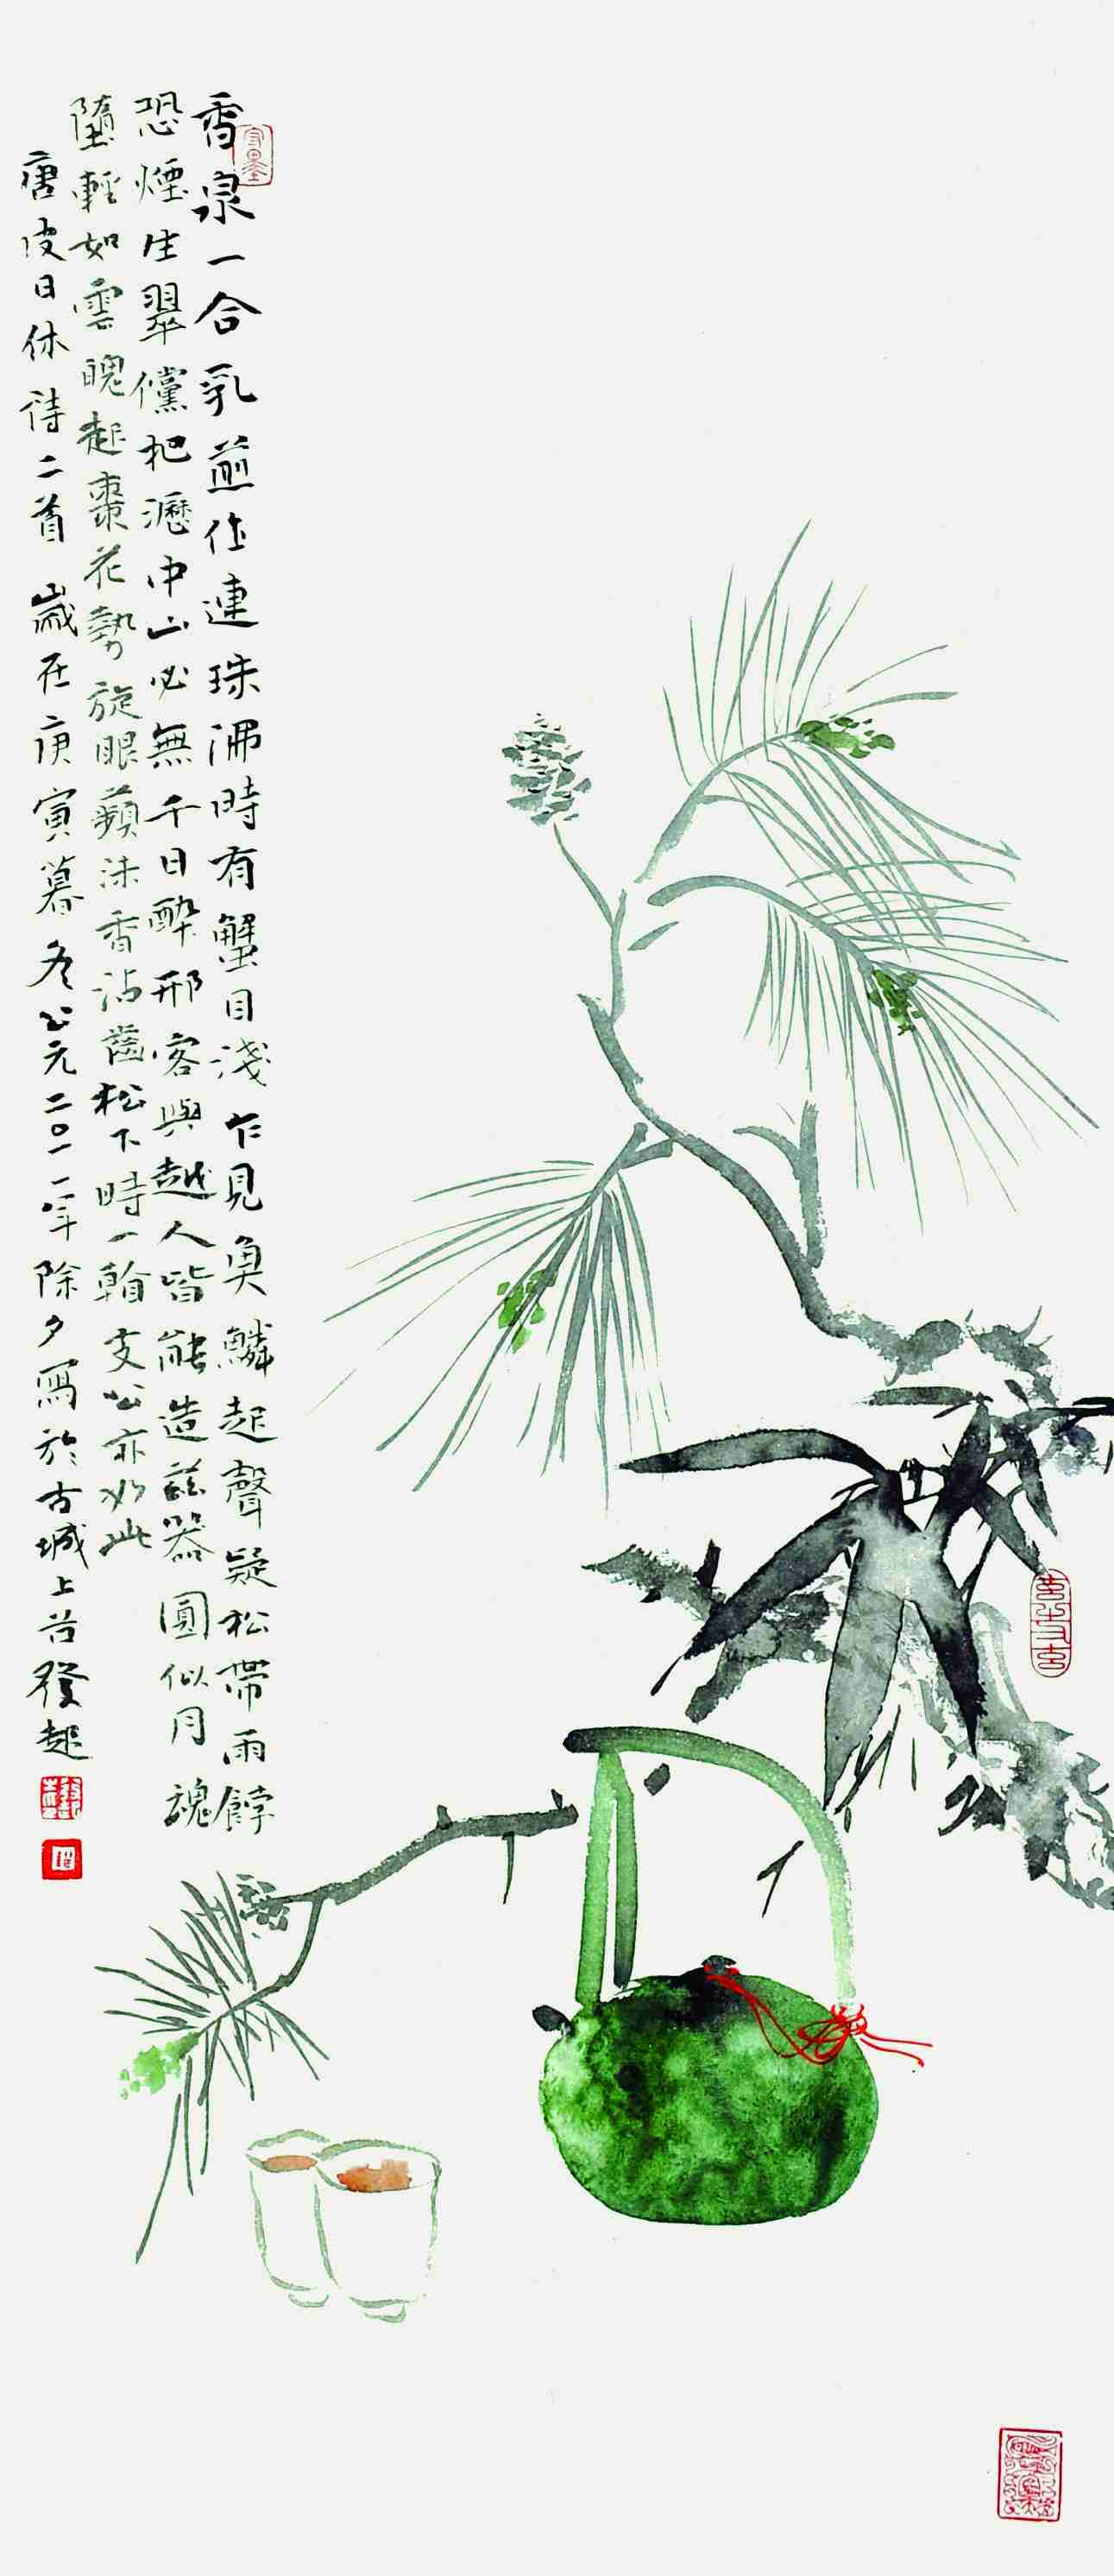 香泉一合乳煎作連珠沸時有蟹目淺乍見魚鱗起聲疑松帶雨餑
恐煙生翠儻把瀝中山必無千日醉邢客與越人皆能造茲器圓似月魂
墮輕如雲魄起棗花勢旋眼蘋沫香沾齒松下時一看支公亦如此
唐皮日休詩二首 歲在庚寅暮冬公元二〇一一年除夕寫於古城上發起